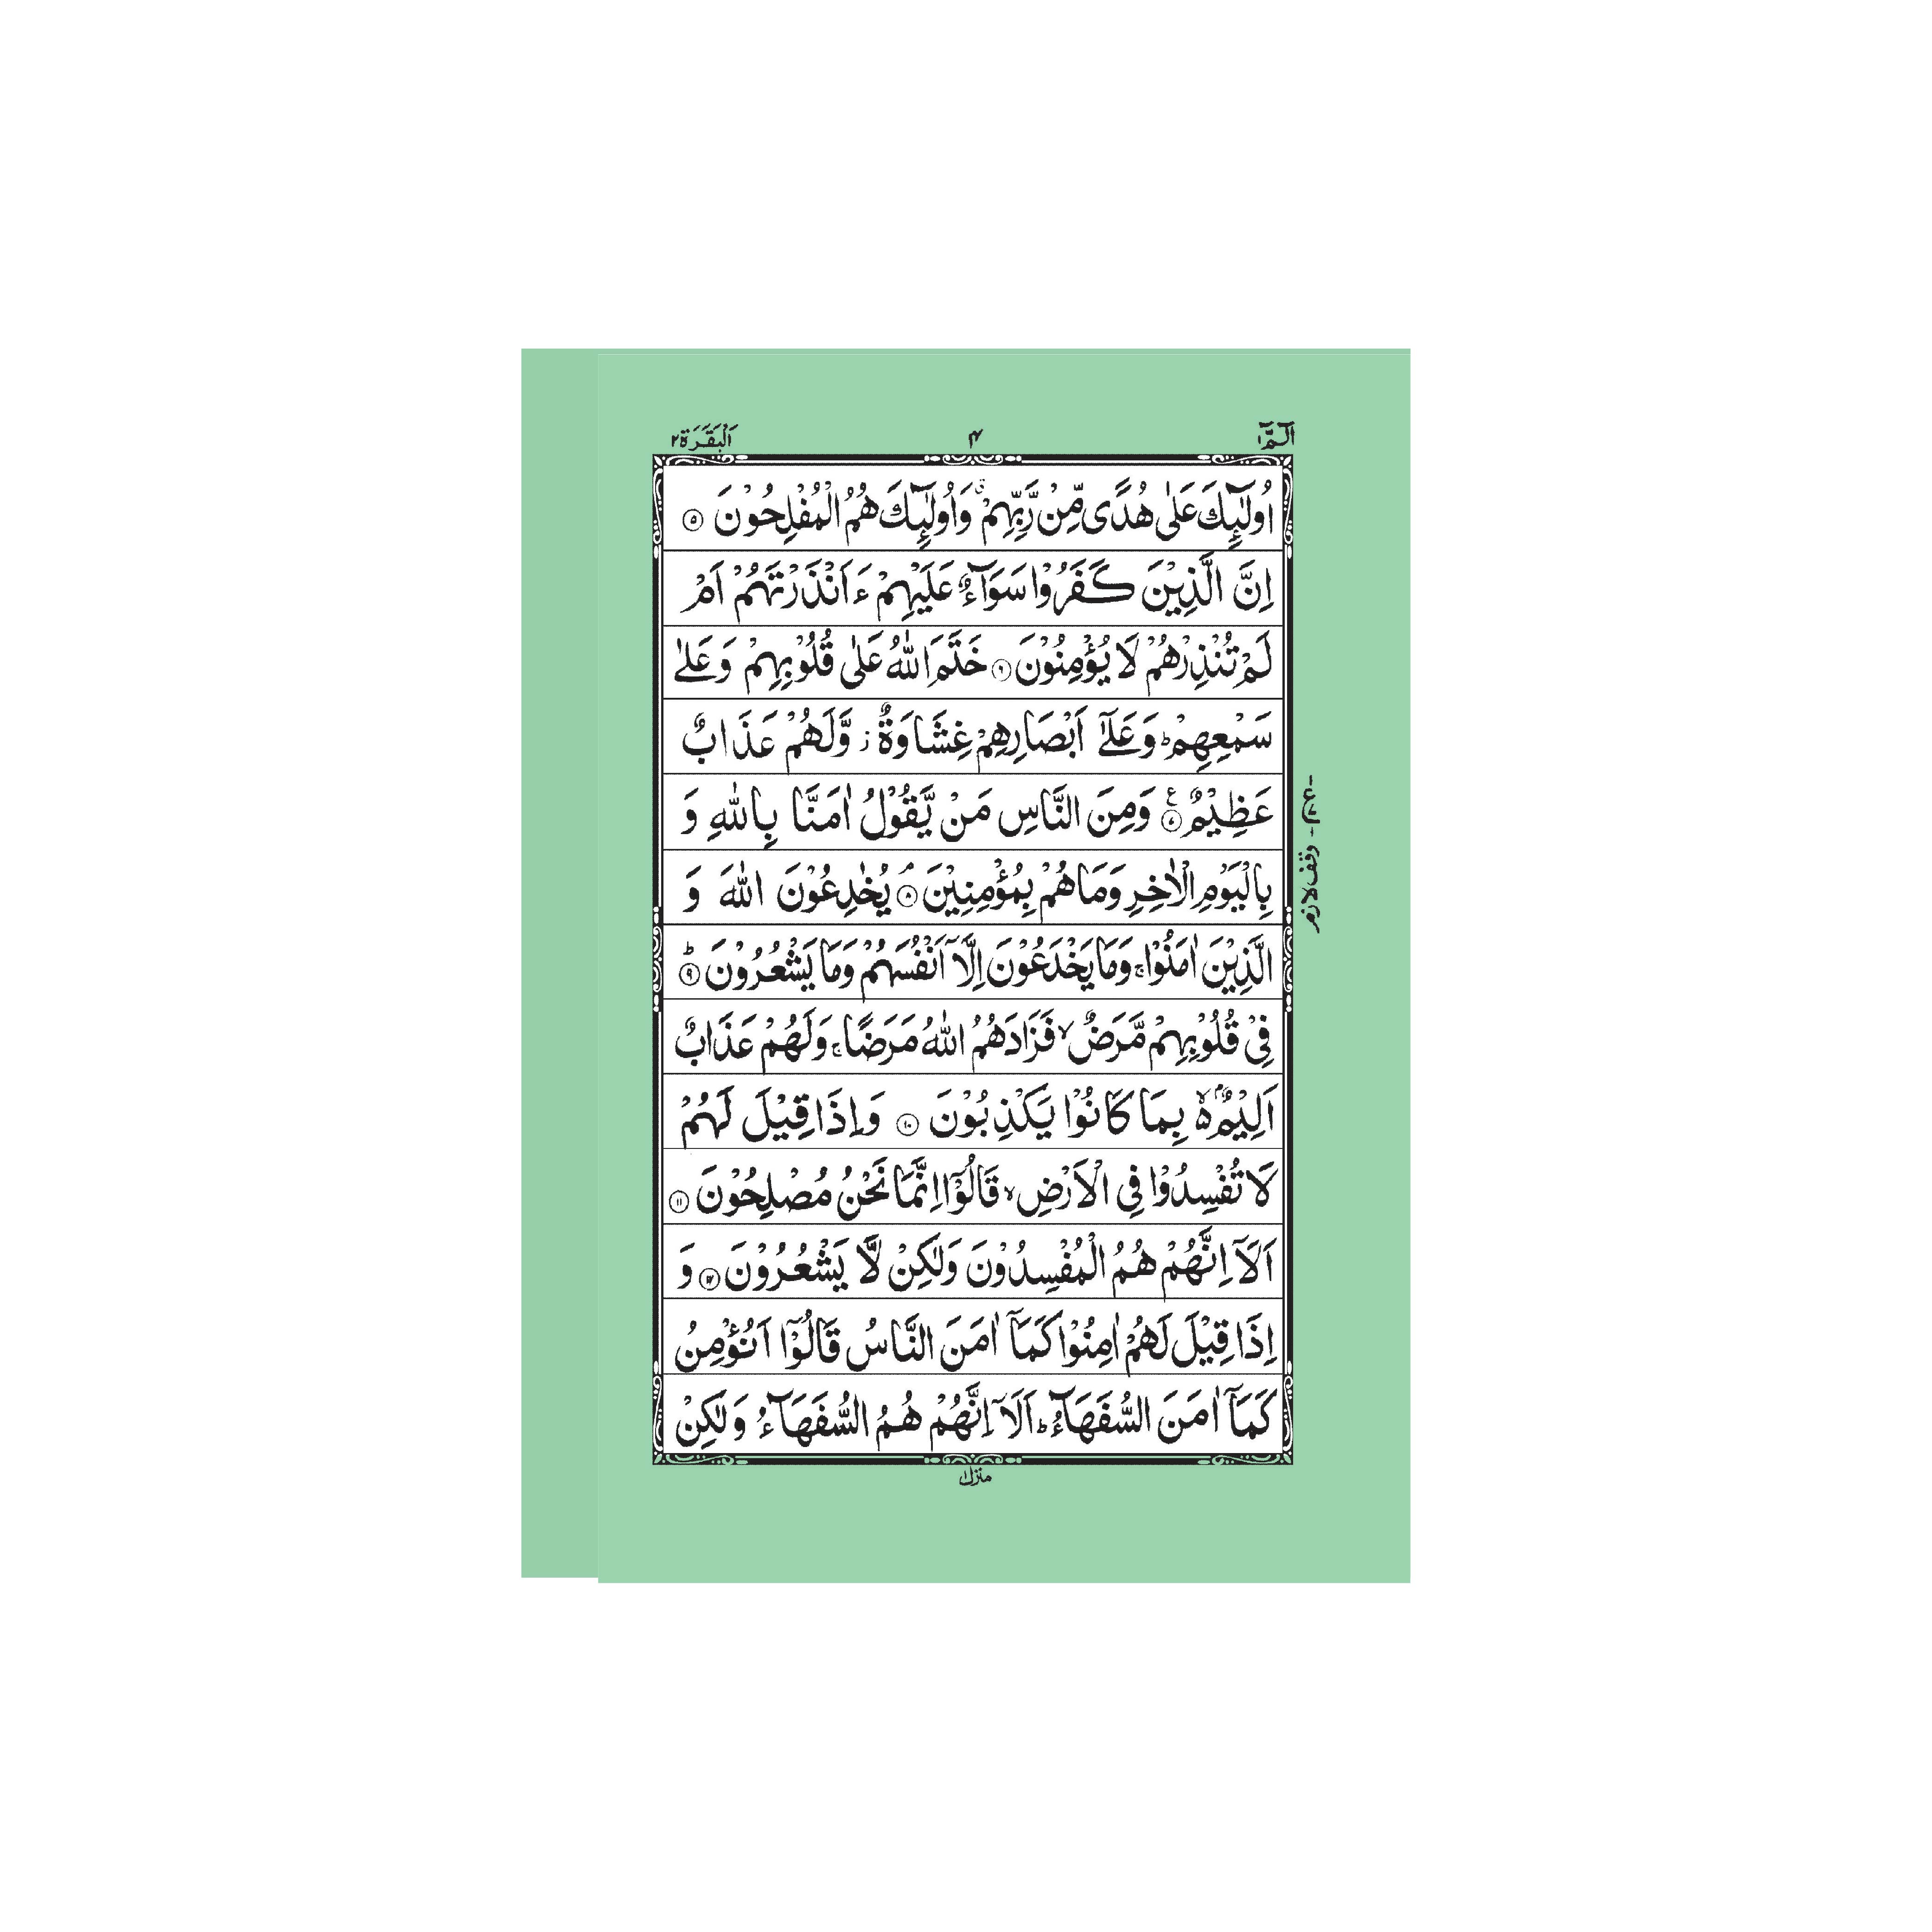 الٓمّٓ ١
٤
اَلْبَقَرَة ٢
اُولٰٓئِكَ عَلٰى هُدًى مِّنْ رَّبِّهِمْ ۗ وَاُولٰٓئِكَ هُمُ الْمُفْلِحُوْنَ ۝٥
اِنَّ الَّذِيْنَ كَفَرُوْا سَوَآءٌ عَلَيْهِمْ ءَاَنْذَرْتَهُمْ اَمْ
لَمْ تُنْذِرْهُمْ لَا يُؤْمِنُوْنَ ۝٦ خَتَمَ اللّٰهُ عَلٰى قُلُوْبِهِمْ وَعَلٰى
سَمْعِهِمْ ؕ وَعَلٰٓى اَبْصَارِهِمْ غِشَاوَةٌ ز وَّلَهُمْ عَذَابٌ
عَظِيْمٌ ۝٧ ع وَمِنَ النَّاسِ مَنْ يَّقُوْلُ اٰمَنَّا بِاللّٰهِ وَ
بِالْيَوْمِ الْاٰخِرِ وَمَا هُمْ بِمُؤْمِنِيْنَ ۝٨ۘ يُخٰدِعُوْنَ اللّٰهَ وَ
الَّذِيْنَ اٰمَنُوْا ۚ وَمَا يَخْدَعُوْنَ اِلَّآ اَنْفُسَهُمْ وَمَا يَشْعُرُوْنَ ۝٩ؕ
فِيْ قُلُوْبِهِمْ مَّرَضٌ ۙ فَزَادَهُمُ اللّٰهُ مَرَضًا ۚ وَلَهُمْ عَذَابٌ
اَلِيْمٌۢ ۙ۬ بِمَا كَانُوْا يَكْذِبُوْنَ ۝١٠ وَاِذَا قِيْلَ لَهُمْ
لَا تُفْسِدُوْا فِي الْاَرْضِ ۙ قَالُوْٓا اِنَّمَا نَحْنُ مُصْلِحُوْنَ ۝١١
اَلَآ اِنَّهُمْ هُمُ الْمُفْسِدُوْنَ وَلٰكِنْ لَّا يَشْعُرُوْنَ ۝١٢ وَ
اِذَا قِيْلَ لَهُمْ اٰمِنُوْا كَمَآ اٰمَنَ النَّاسُ قَالُوْٓا اَنُؤْمِنُ
كَمَآ اٰمَنَ السُّفَهَآءُ ؕ اَلَآ اِنَّهُمْ هُمُ السُّفَهَآءُ وَلٰكِنْ
وقف لازم
منزل ١